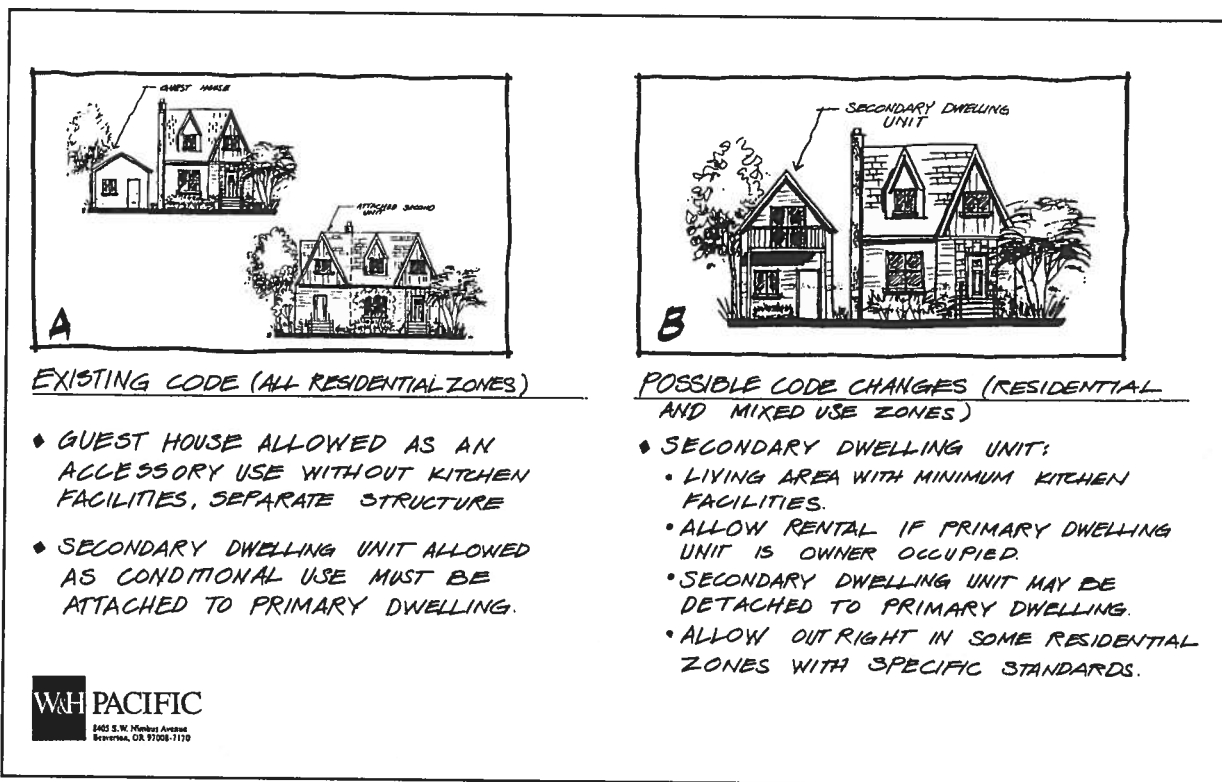 GUEST HOUSE
ATTACHED SECOND
UNIT
A
EXISTING CODE (ALL RESIDENTIAL ZONES)
♦ GUEST HOUSE ALLOWED AS AN
ACCESSORY USE WITHOUT KITCHEN
FACILITIES, SEPARATE STRUCTURE
♦ SECONDARY DWELLING UNIT ALLOWED
AS CONDITIONAL USE MUST BE
ATTACHED TO PRIMARY DWELLING.
W&H PACIFIC
8405 S.W. Nimbus Avenue
Beaverton, OR 97008-7120
SECONDARY DWELLING
UNIT
B
POSSIBLE CODE CHANGES (RESIDENTIAL
AND MIXED USE ZONES)
♦ SECONDARY DWELLING UNIT:
• LIVING AREA WITH MINIMUM KITCHEN
FACILITIES.
• ALLOW RENTAL IF PRIMARY DWELLING
UNIT IS OWNER OCCUPIED.
• SECONDARY DWELLING UNIT MAY BE
DETACHED TO PRIMARY DWELLING.
• ALLOW OUTRIGHT IN SOME RESIDENTIAL
ZONES WITH SPECIFIC STANDARDS.